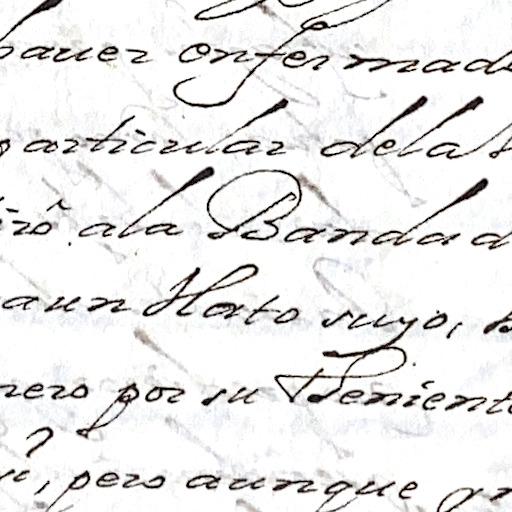 haver enfermado
particular dela
tirô ala Banda d
aun Hato suyo,
nero por su Theniente
pero aunque